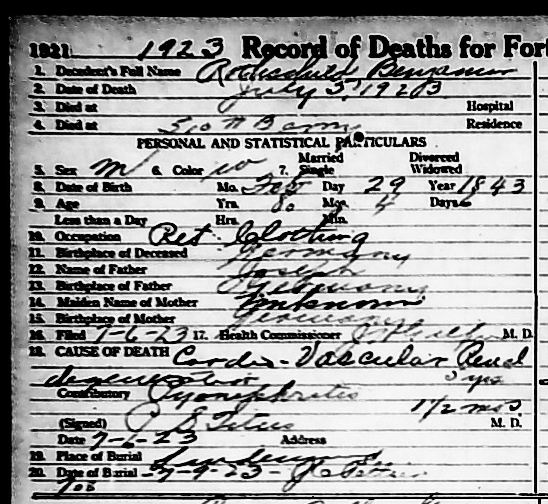 1921 1923 Record of Deaths for Fort
1. Decedent's Full Name Rothschild, Benjamin
2. Date of Death July 3, 1923
3. Died at Hospital
4. Died at Residence
PERSONAL AND STATISTICAL PARTICULARS
Married Divorced
5. Sex M 6. Color W 7. Single Widowed
8. Date of Birth Mo. Feb Day 29 Year 1843
9. Age Yrs. 80 Mos. 4 Days
Less than a Day Hrs. Min.
10. Occupation Ret. Clothing
11. Birthplace of Deceased Germany
12. Name of Father Joseph
13. Birthplace of Father Germany
14. Maiden Name of Mother Unknown
15. Birthplace of Mother Germany
16. Filed 7-6-23 17. Health Commissioner M. D.
18. CAUSE OF DEATH Cardio-Vascular Renal
degeneration 3 yrs
Contributory Pyonephritis
1 1/2 mos.
(Signed) M. D.
Date 7-6-23 Address
19. Place of Burial Lindenwood
20. Date of Burial -7-9-23-